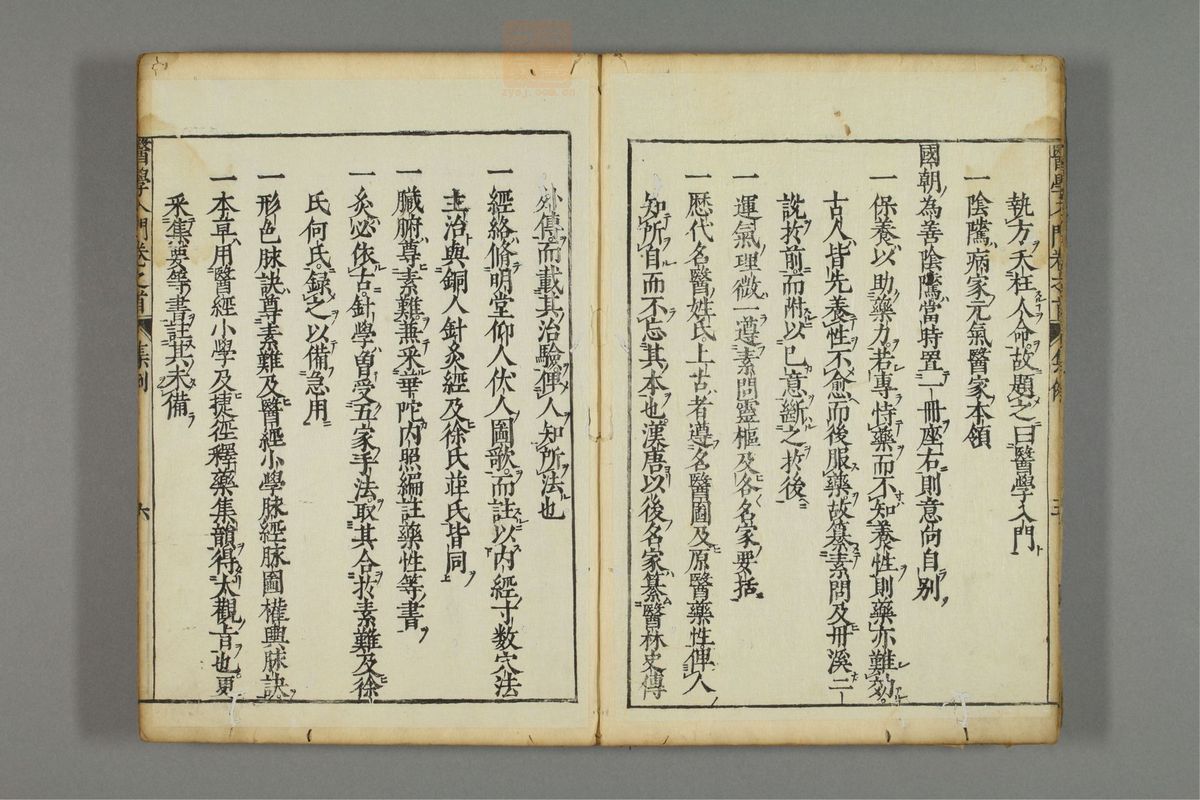 醫學入門卷之首 集例 五
執方夭枉人命故題之曰醫學入門
一陰隲病家元氣醫家本領
國朝為善陰隲當時置一冊座右則意尚自别
一保養以助藥力若專恃藥而不知養性則藥亦難効
古人皆先養性不愈而後服藥故纂素問及丹溪二
説於前而附以己意斷之於後
一運氣理微一遵素問靈樞及各名家要括
一歴代名醫姓氏上古者遵名醫圖及原醫藥性俾人
知所自而不忘其本也漢唐以後名家纂醫林史傳
外傳而載其治驗俾人知所法也
一經絡脩明堂仰人伏人圖歌而註以内經寸数穴法
主治與銅人針灸經及徐氏莊氏皆同
一臟腑尊素難兼采華陀内照編註藥性等書
一灸必依古針學曽受五家手法取其合於素難及徐
氏何氏録之以備急用
一形色脉訣尊素難及醫經小學脉經脉圖權輿脉訣
一本草用醫經小學及捷徑釋藥集韻得大觀㫖也更
采集要等書註其未備
醫學入門卷之首 集例 六
zyoj.com.cn